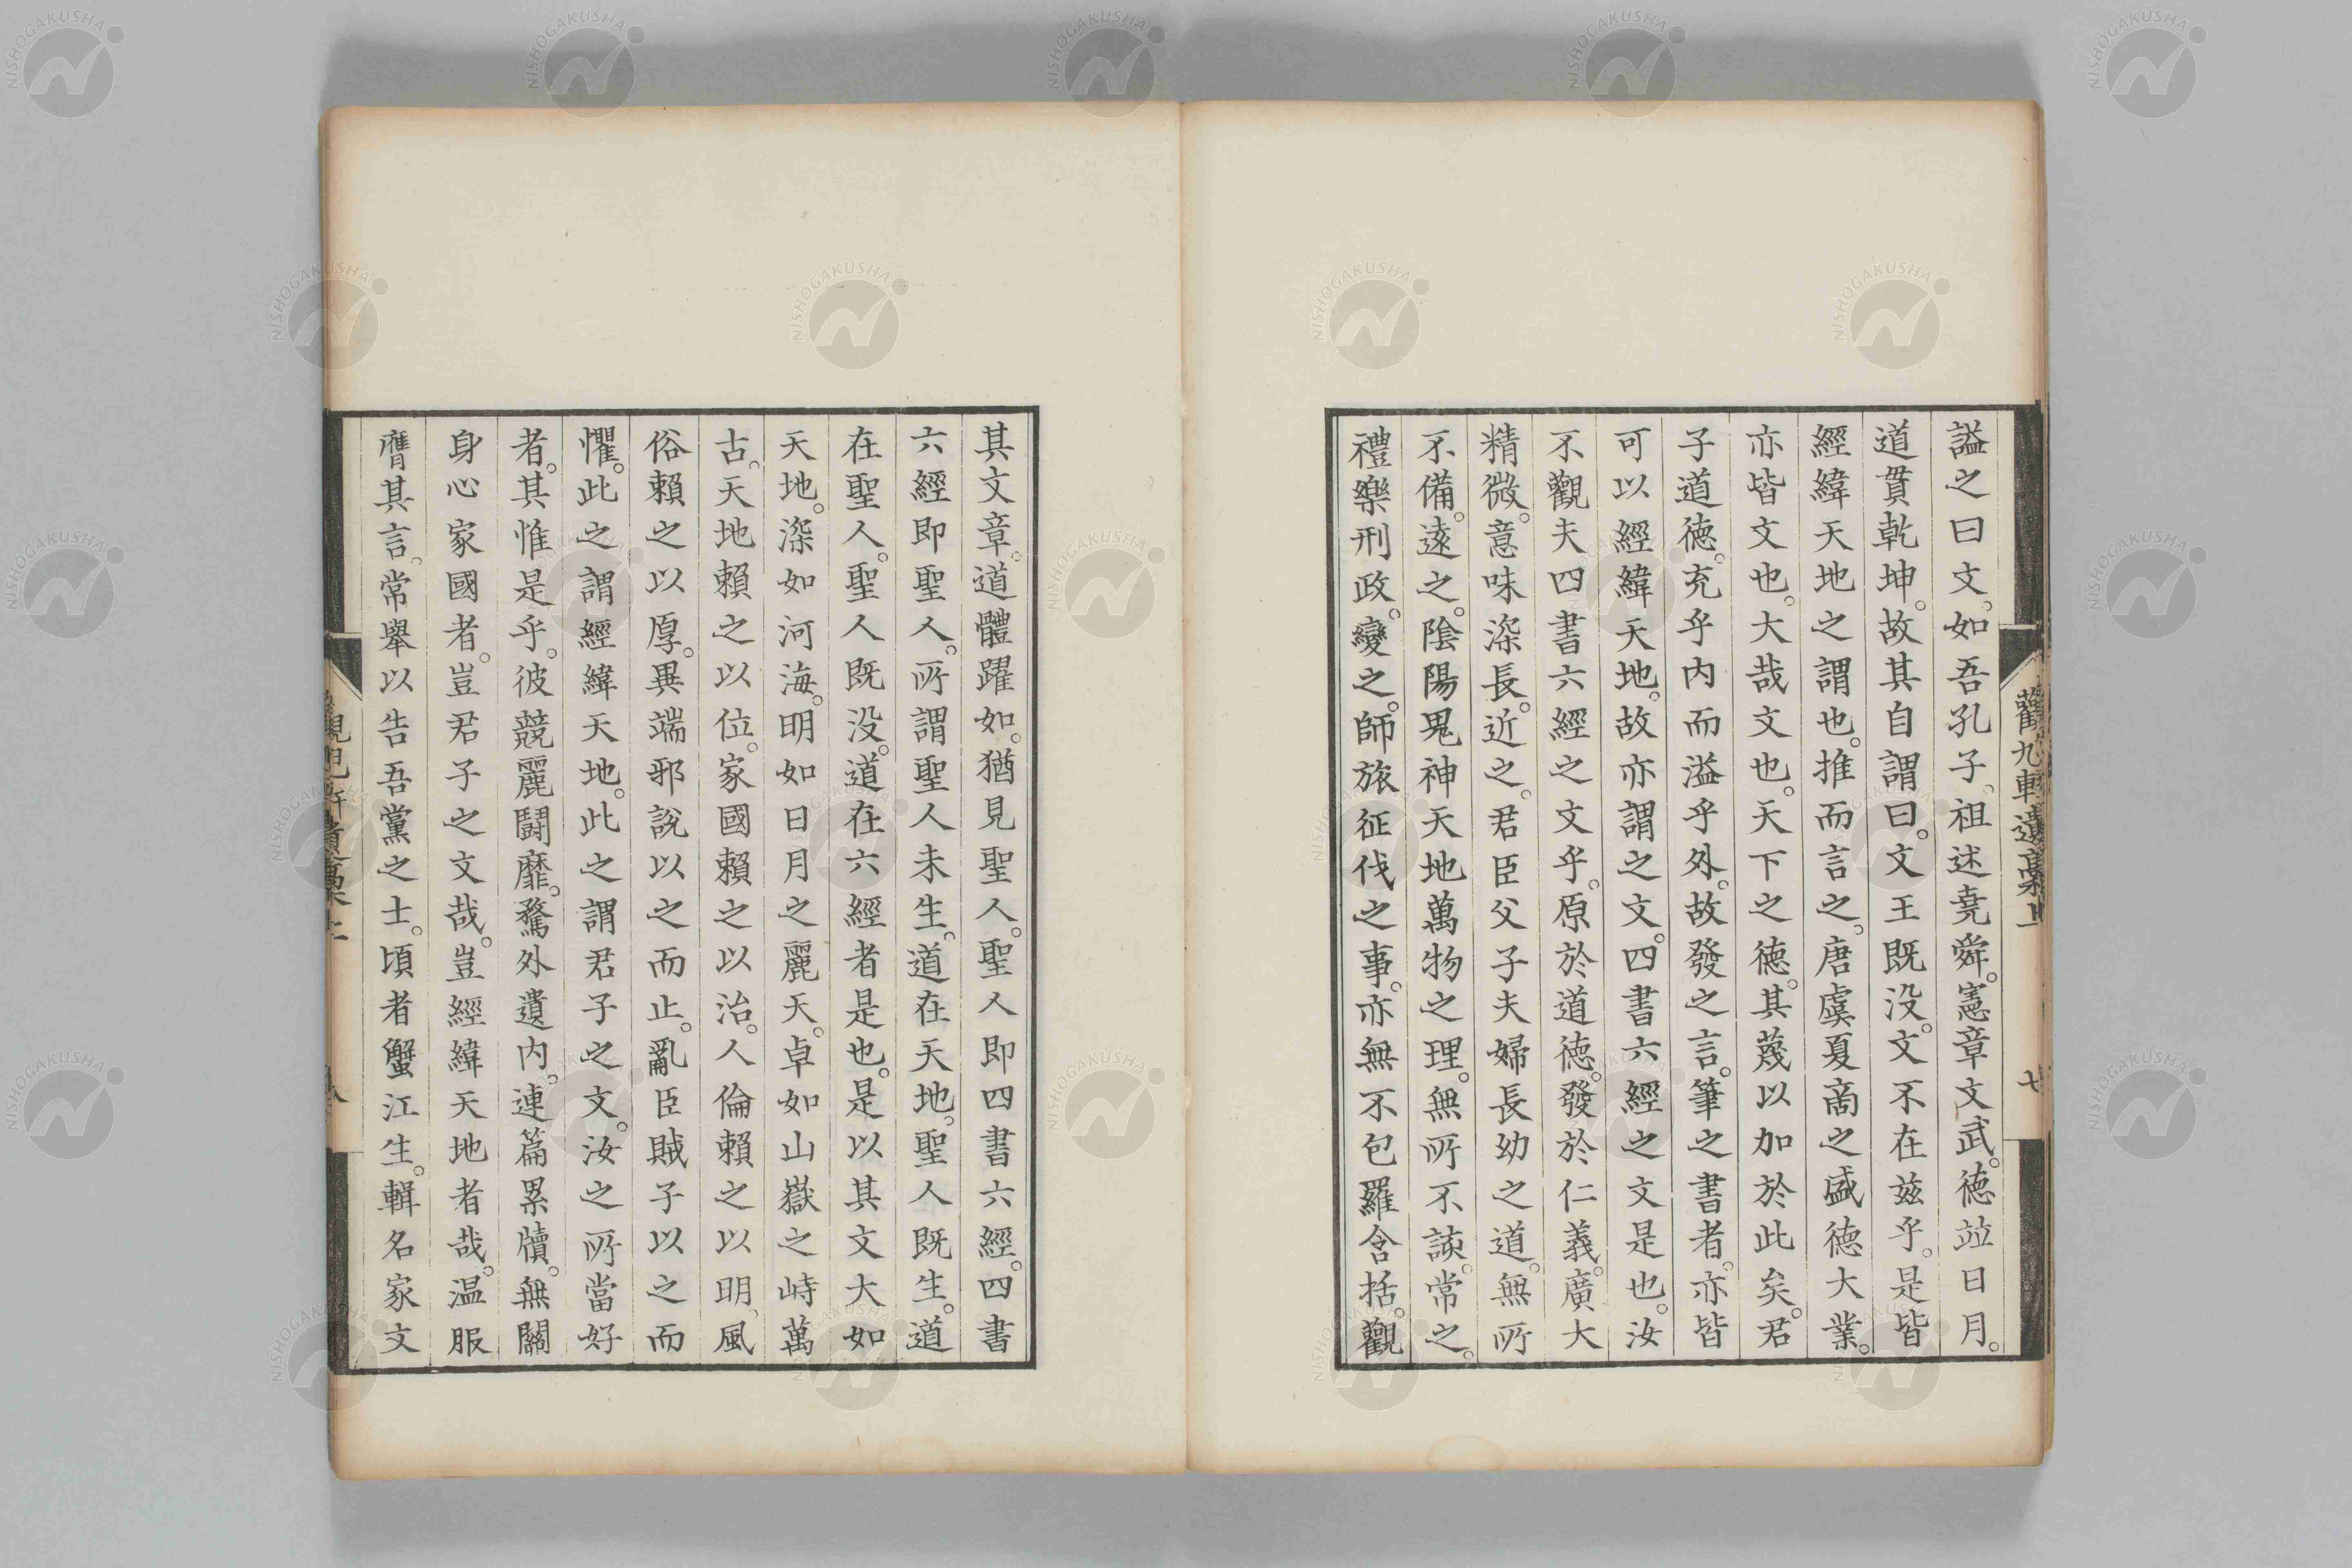 諡之曰文。如吾孔子。祖述堯舜。憲章文武。德竝日月。
道貫乾坤。故其自謂曰。文王既没。文不在茲乎。是皆
經緯天地之謂也。推而言之。唐虞夏商之盛德大業。
亦皆文也。大哉文也。天下之德。其蔑以加於此矣。君
子道德。充乎内而溢乎外。故發之言。筆之書者。亦皆
可以經緯天地。故亦謂之文。四書六經之文是也。汝
不觀夫四書六經之文乎。原於道德。發於仁義。廣大
精微。意味深長。近之。君臣父子夫婦長幼之道。無所
不備。遠之。陰陽鬼神天地萬物之理。無所不該。常之。
禮樂刑政。變之。師旅征伐之事。亦無不包羅含括。觀
其文章。道體躍如。猶見聖人。聖人即四書六經。四書
六經即聖人。所謂聖人未生。道在天地。聖人既生。道
在聖人。聖人既没。道在六經者是也。是以其文大如
天地。深如河海。明如日月之麗天。卓如山嶽之峙萬
古。天地賴之以位。家國賴之以治。人倫賴之以明。風
俗賴之以厚。異端邪說以之而止。亂臣賊子以之而
懼。此之謂經緯天地。此之謂君子之文。汝之所當好
者。其惟是乎。彼競麗鬪靡。騖外遺内。連篇累牘。無關
身心家國者。豈君子之文哉。豈經緯天地者哉。温服
膺其言。常舉以告吾黨之士。頃者蟹江生。輯名家文
觀九軒遺稾 上
七
八
NISHOGAKUSHA